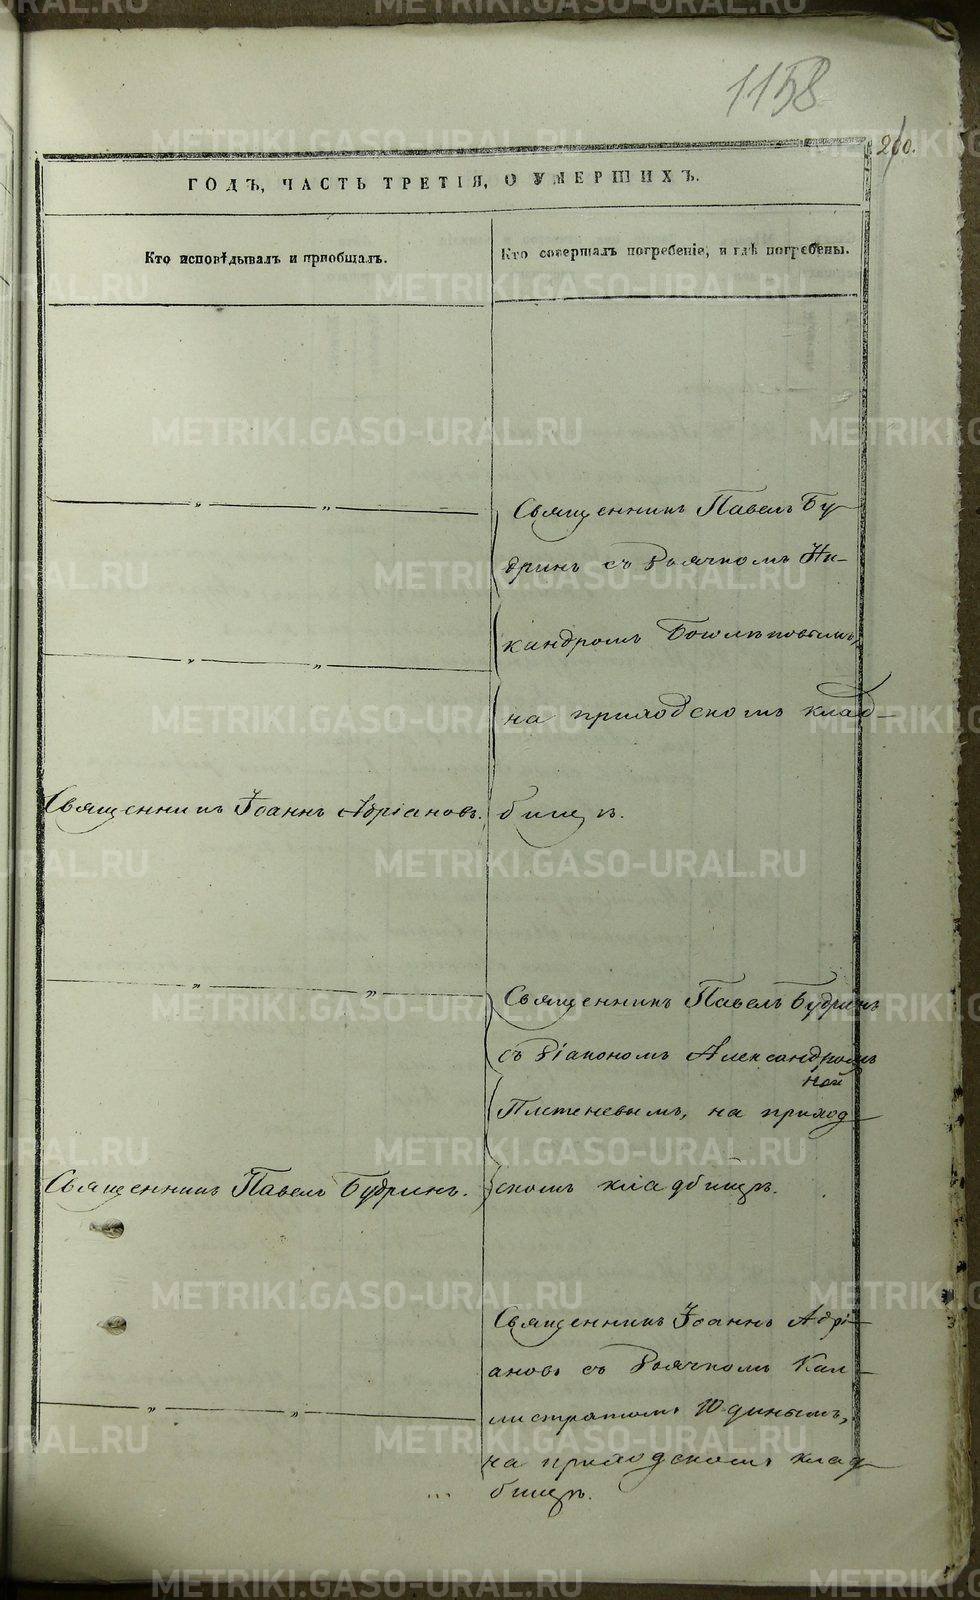 1158
260.
ГОДЪ, ЧАСТЬ ТРЕТІЯ, О УМЕРШИХЪ.
Кто исповѣдывалъ и пріобщалъ.
Кто совершалъ погребеніе, и гдѣ погребены.
Священникъ Павелъ Бу-
дринъ съ Дьячкомъ Ни-
кандромъ
на приходскомъ клад-
Священникъ Іоаннъ Адріановъ.
бищѣ.
Священникъ Павелъ Будринъ
съ Діакономъ Александромъ
Плетеневымъ, на приход
ской
Священникъ Павелъ Будринъ.
скомъ кладбищѣ.
Священникъ Іоаннъ Адрі-
ановъ съ Дьячкомъ Кал-
листратомъ Юдинымъ,
на приходскомъ клад-
бищѣ.
METRIKI.GASO-URAL.RU